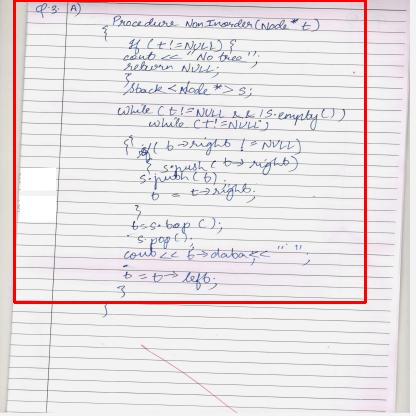 Q.3. A)
Procedure NonInorder(Node* t)
{
if (t!=NULL) {
cout << "No tree";
return NULL;
}
Stack <Node *> s;
while (t!=NULL && !s.empty())
while (t!=NULL)
{ if (t→right != NULL)
{ s.push (t→right)
s.push(t);
t = t→right;
}
t=s.top();
s.pop();
cout << t→data<< " ";
t = t→left;
}
}